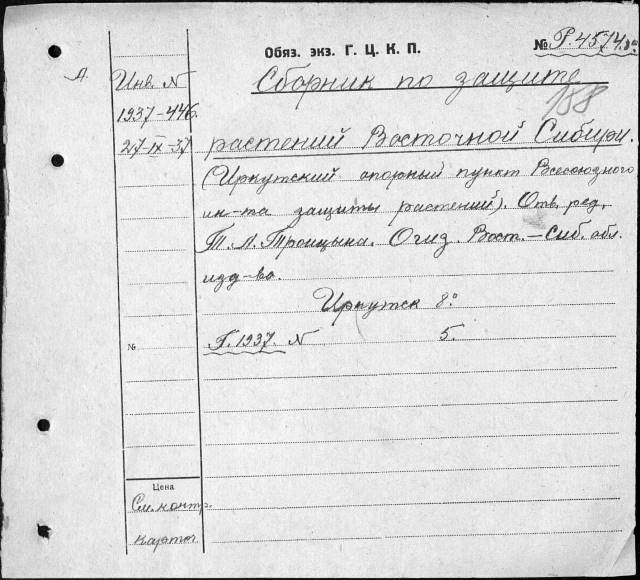 Обяз. экз. Г. Ц. К. П.
№ Р.4574.
Д.
Инв. N
1937-446.
27-IX-37
Сборник по защите
188
растений Восточной Сибири.
(Иркутский опорный пункт Всесоюзного
ин-та защиты растений). Отв. ред.
Т. Л. Троицына. Огиз. Вост.-Сиб. обл.
изд-во.
Иркутск 8°
№
Г. 1937. N 5.
Цена
См. контр.
карточ